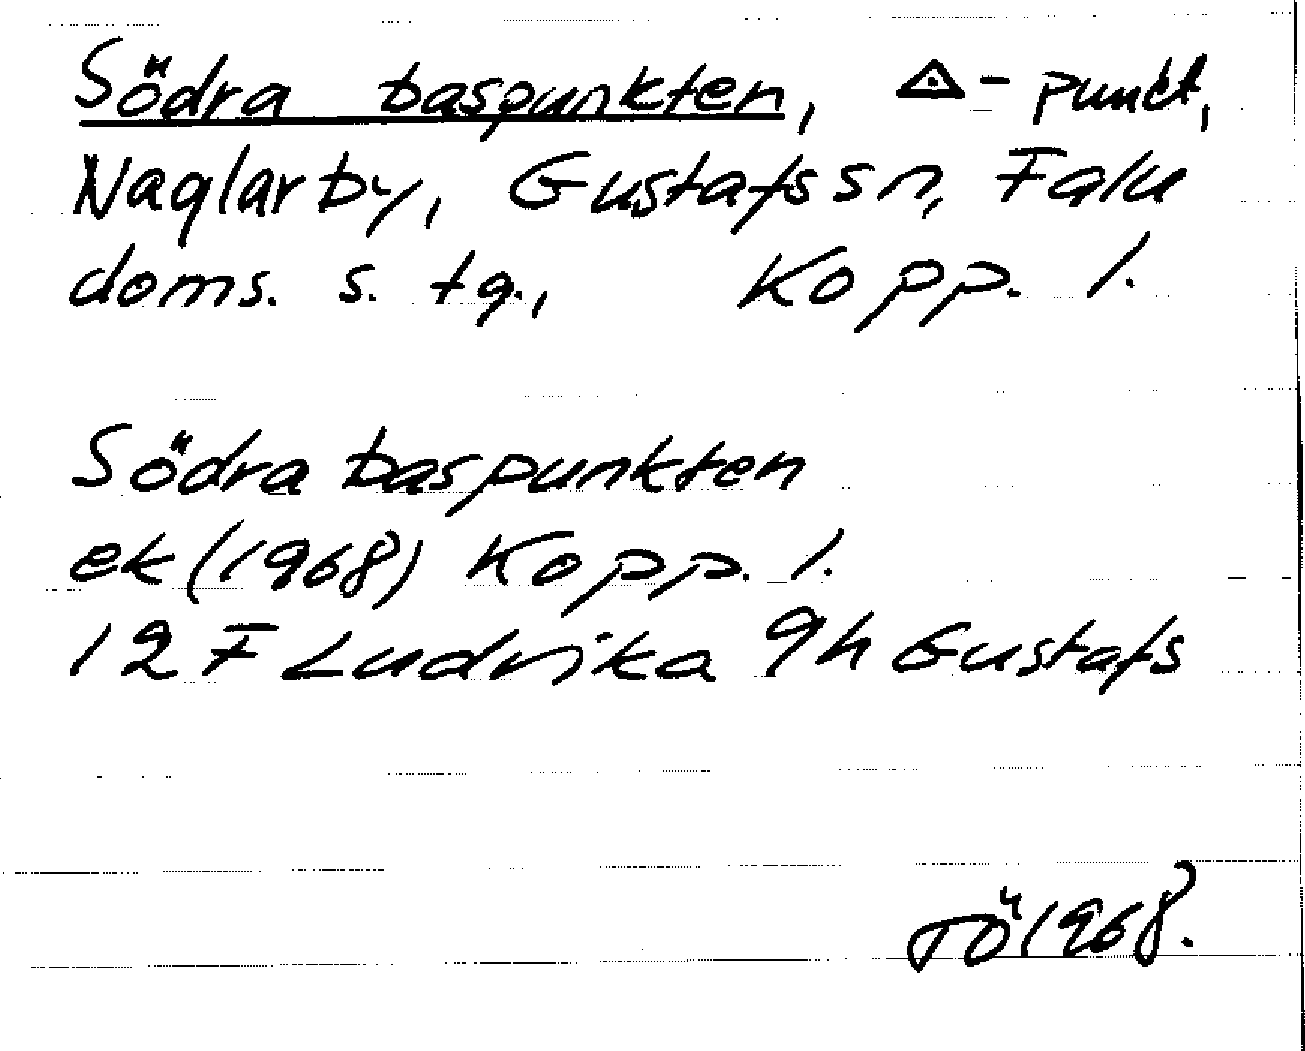 Södra baspunkten, △-punkt,
Naglarby, Gustafs sn, Falu
doms. s. tg., Kopp. l.
Södra baspunkten
ek (1968) Kopp. l.
12 F Ludvika 9h Gustafs
TÖ 1968.